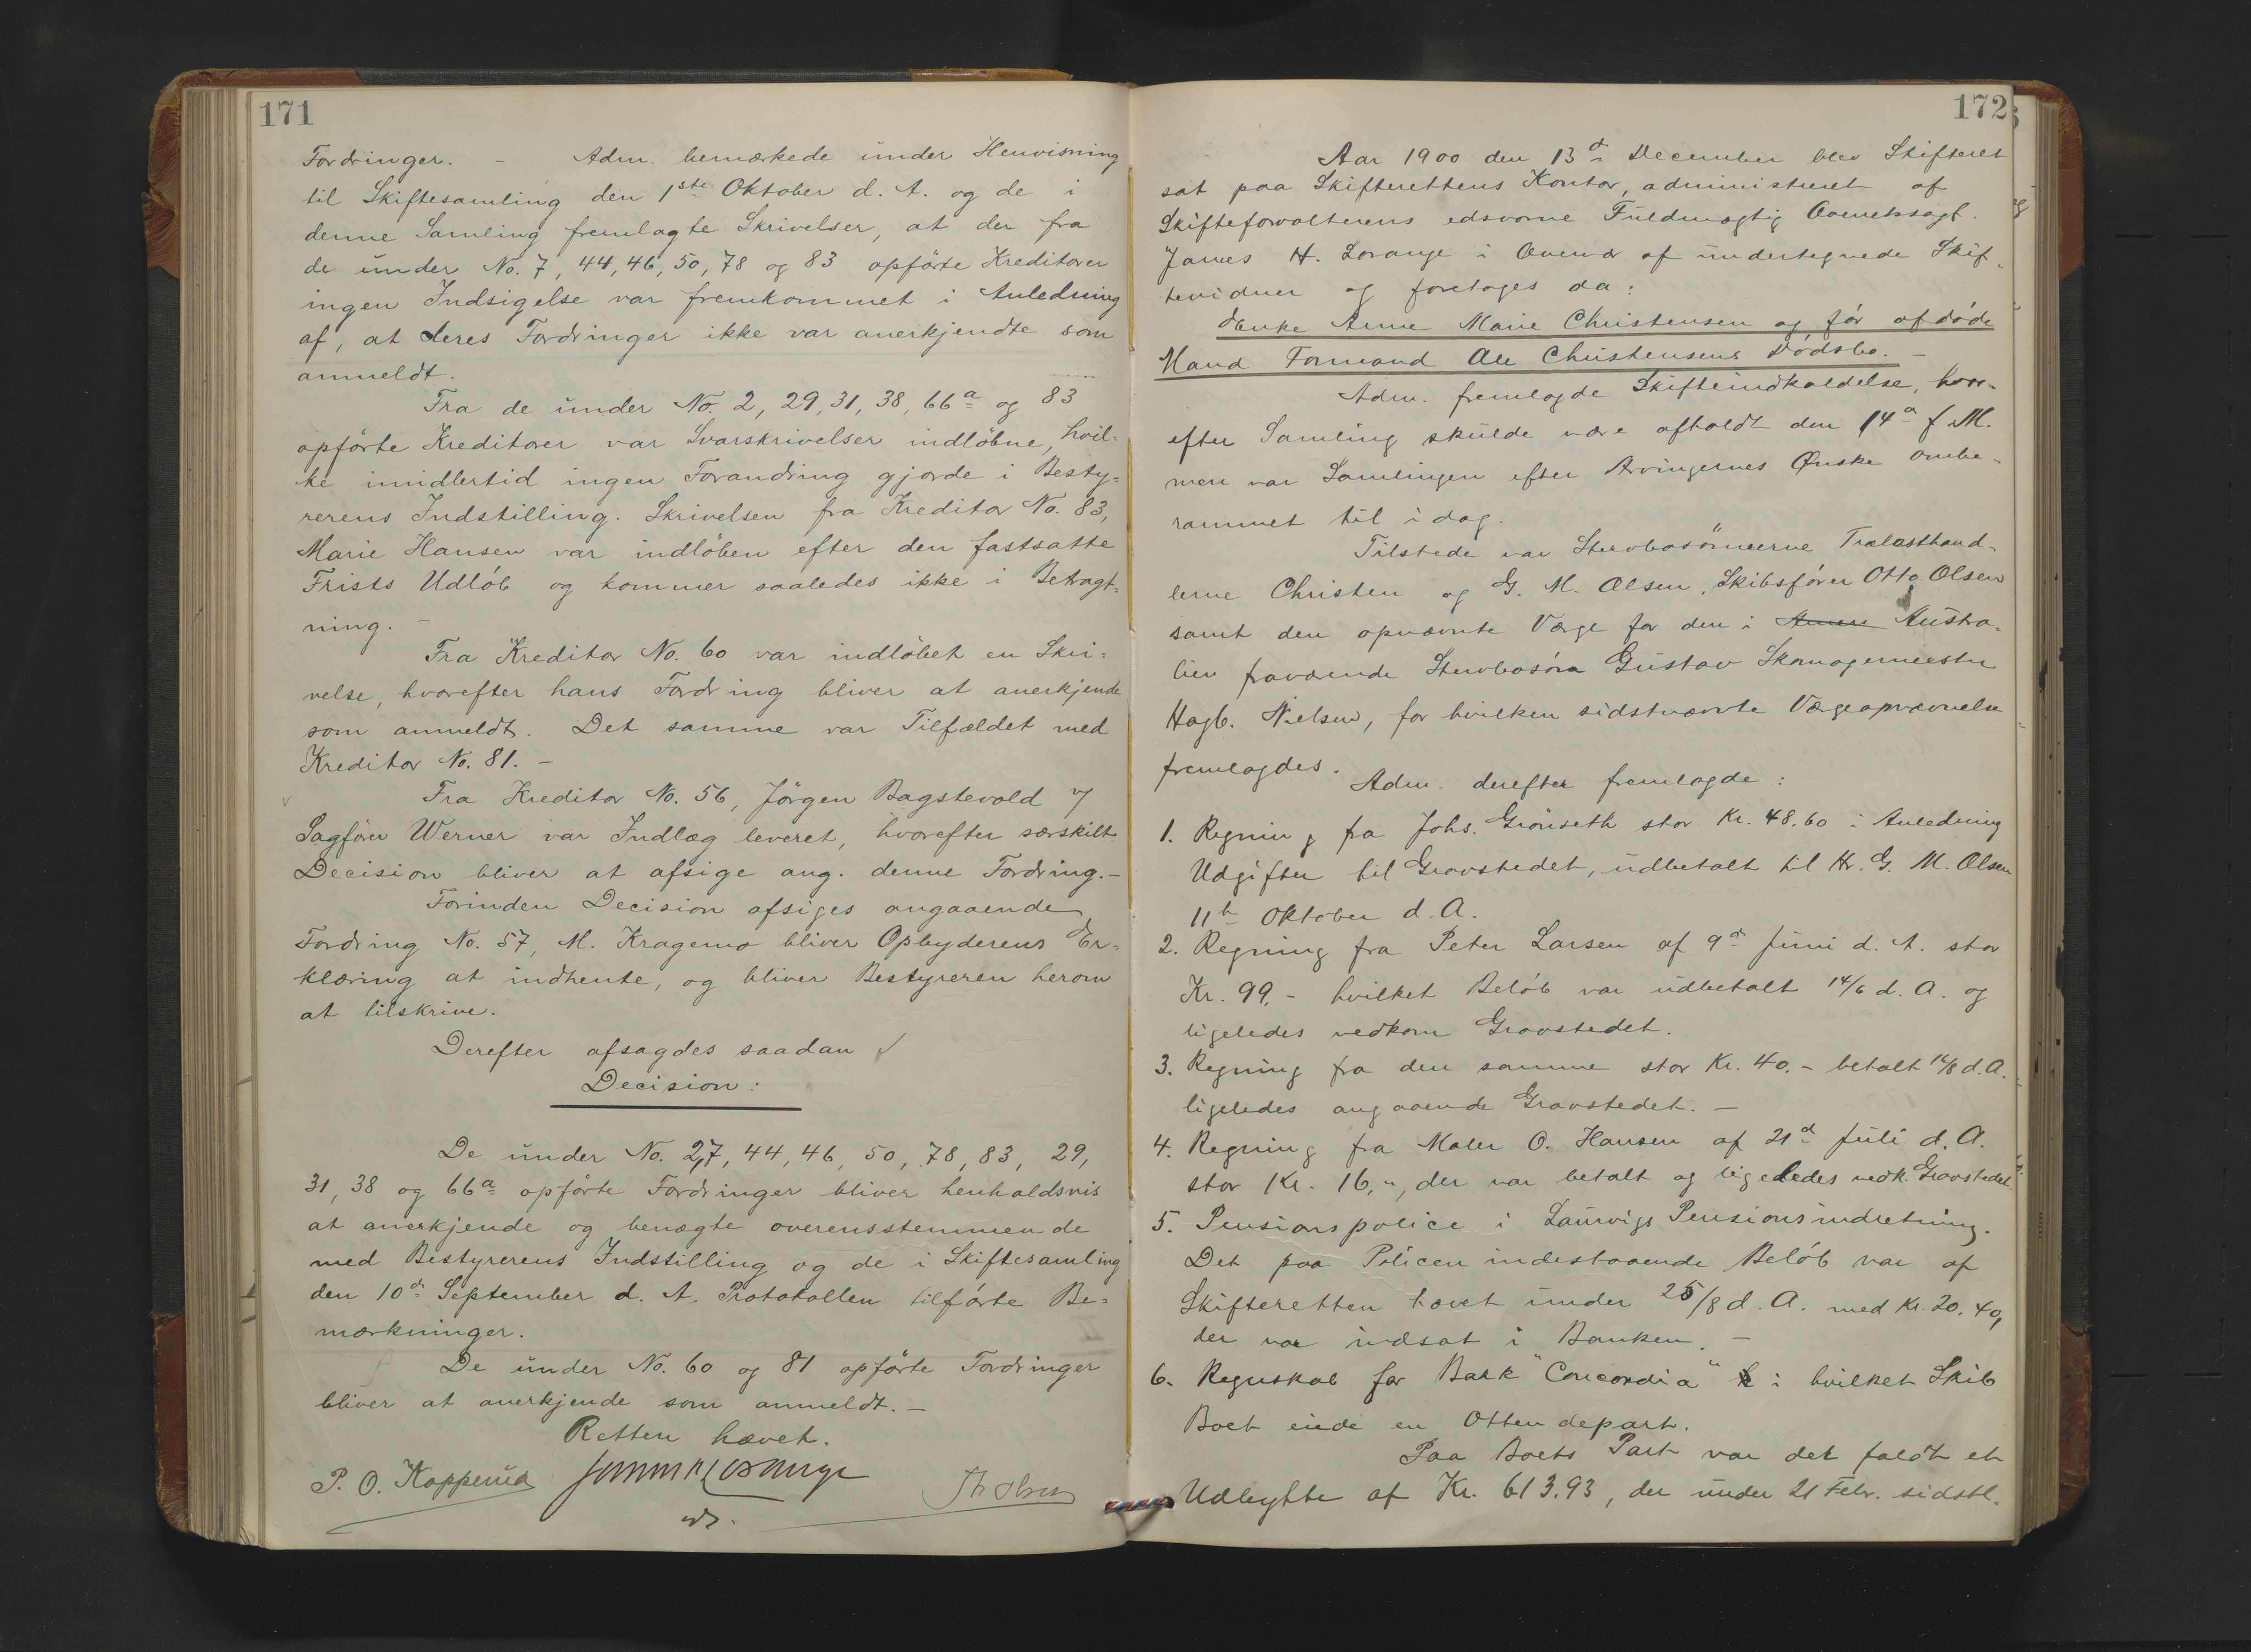 171
Fordringer. – Adm. bemærkede under Henvisning
til Skiftesamling den 1ste Oktober d. A. og de i
denne Samling fremlagte Skrivelser, at der fra
de under No. 7, 44, 46, 50, 78 og 83 opførte Kreditorer
ingen Indsigelse var fremkommet i Anledning
af, at deres Fordringer ikke var anerkjendte som
anmeldt.
Fra de under No. 2, 29, 31, 38, 66a og 83
opførte Kreditorer var Svarskrivelser indløbne, hvil-
ke imidlertid ingen Forandring gjorde i Besty-
rerens Indstilling. Skrivelsen fra Kreditor No. 83,
Marie Hansen var indløben efter den fastsatte
Frists Udløb og kommer saaledes ikke i Betragt-
ning. –
Fra Kreditor No. 60 var indløbet en Skri-
velse, hvorefter hans Fordring bliver at anerkjende
som anmeldt. Det samme var Tilfældet med
Kreditor No. 81. –
Fra Kreditor No. 56, Jörgen Bagstevold v/
Sagfører Werner var Indlæg leveret, hvorefter særskilt
Decision bliver at afsige ang. denne Fordring. –
Forinden Decision afsiges angaaende
Fordring No. 57, M. Kragemo bliver Opbyderens Er-
klæring at indhente, og bliver Bestyreren herom
at tilskrive.
Derefter afsagdes saadan
Decision:
De under No. 2, 7, 44, 46, 50, 78, 83, 29,
31, 38 og 66a opførte Fordringer bliver henholdsvis
at anerkjende og benægte overensstemmende
med Bestyrerens Indstilling og de i Skiftesamling
den 10d September d. A. Protokollen tilførte Be-
mærkninger.
De under No. 60 og 81 opførte Fordringer
bliver at anerkjende som anmeldt. –
Retten hævet.
P. O. Kopperud
172
Aar 1900 den 13d December blev Skifteret
sat paa Skifterettens Kontor, administreret af
Skifteforvalterens edsvorne Fuldmægtig Overretssagf.
James H. Lorange i Overvær af undertegnede Skif-
tevidner og foretoges da:
Enke Anne Marie Christensen og før afdøde
Mand Formand Ole Christensens Dødsbo. –
Adm. fremlagde Skifteindkaldelse, hvor-
efter Samling skulde være afholdt den 14d f. M.
men var Samlingen efter Arvingernes Ønske ombe-
rammet til idag.
Tilstede var Stervbosönnerne Trælasthand-
lerne Christen og G. M. Olsen, Skibsfører Otto Olsen
samt den opnævnte Værge for den i Amer Austra-
lien fraværende Stervbosön Gustav Skomagermester
Hagb. Nielsen, for hvilken sidstnævnte Værgeopnævnelse
fremlagdes.
Adm. derefter fremlagde:
1. Regning fra Johs. Grönseth stor Kr. 48.60 i Anledning
Udgifter til Gravstedet, udbetalt til Hr. G. M. Olsen
11te Oktober d. A.
2. Regning fra Peter Larsen af 9d Juni d. A. stor
Kr. 99. – hvilket Beløb var udbetalt 14/6 d. A. og
ligeledes vedkom Gravstedet.
3. Regning fra den samme stor Kr. 40. – betalt 14/8 d. A.
ligeledes angaaende Gravstedet. –
4. Regning fra Maler O. Hansen af 21d Juli d. A.
stor Kr. 16,", der var betalt og ligeledes vedk. Gravstedet.
5. Pensionspolice i Laurvigs Pensionsindretning.
Det paa Policen indestaaende Beløb var af
Skifteretten hævet under 25/8 d. A. med Kr. 20.40,
der var indsat i Banken. –
6. Regnskab for Bark "Concordia" i hvilket Skib
Boet eiede en Ottendepart.
Paa Boets Part var det faldt et
Udbytte af Kr. 613.93, der under 21 Febr. sidstl.